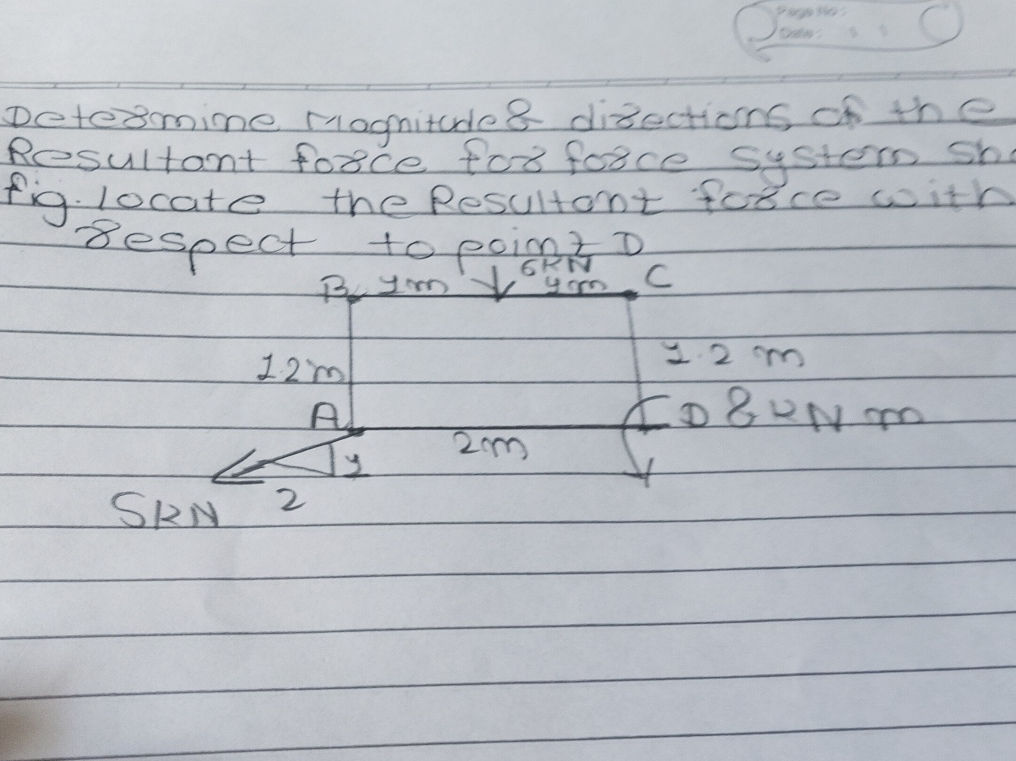 Page No:
Date:
Determine Magnitude & directions of the
Resultant force for force system sh
fig. locate the Resultant force with
respect to point D
6KN
B 1m 1m C
1.2m 1.2 m
A D 8 KN m
2m
1
2
5KN